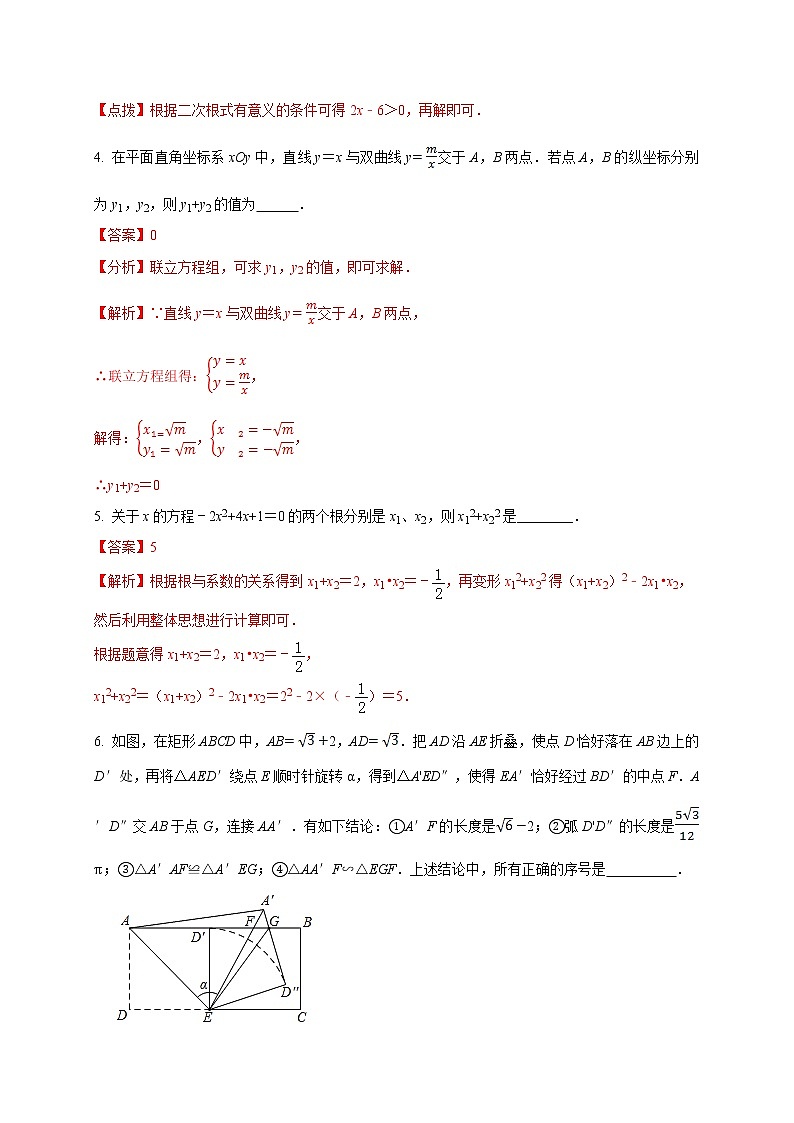 【点拨】根据二次根式有意义的条件可得 2x﹣6＞0，再解即可．
4. 在平面直角坐标系 xOy 中，直线 y＝x 与双曲线 y＝m/x 交于 A，B 两点．若点 A，B 的纵坐标分别
为 y₁，y₂，则 y₁+y₂ 的值为______．
【答案】0
【分析】联立方程组，可求 y₁，y₂ 的值，即可求解．
【解析】∵直线 y＝x 与双曲线 y＝m/x 交于 A，B 两点，
∴联立方程组得：{y = x
y = m/x，
解得：{x₁₌√m，{x ₂ = −√m
y₁ = √m y ₂ = −√m，
∴y₁+y₂＝0
5. 关于 x 的方程﹣2x²+4x+1＝0 的两个根分别是 x₁、x₂，则 x₁²+x₂² 是________．
【答案】5
【解析】根据根与系数的关系得到 x₁+x₂＝2，x₁•x₂＝﹣1/2，再变形 x₁²+x₂² 得（x₁+x₂）²﹣2x₁•x₂，
然后利用整体思想进行计算即可．
根据题意得 x₁+x₂＝2，x₁•x₂＝﹣1/2，
x₁²+x₂²＝（x₁+x₂）²﹣2x₁•x₂＝2²﹣2×（﹣1/2）＝5．
6. 如图，在矩形 ABCD 中，AB＝√3+2，AD＝√3．把 AD 沿 AE 折叠，使点 D 恰好落在 AB 边上的
D′处，再将△AED′绕点 E 顺时针旋转α，得到△A'ED″，使得 EA′恰好经过 BD′的中点 F．A
′D″交 AB 于点 G，连接 AA′．有如下结论：①A′F 的长度是√6−2；②弧 D'D″的长度是5√3/12
π；③△A′AF≌△A′EG；④△AA′F∽△EGF．上述结论中，所有正确的序号是__________．
A′
A
F
G
B
D′
α
D″
D
E
C